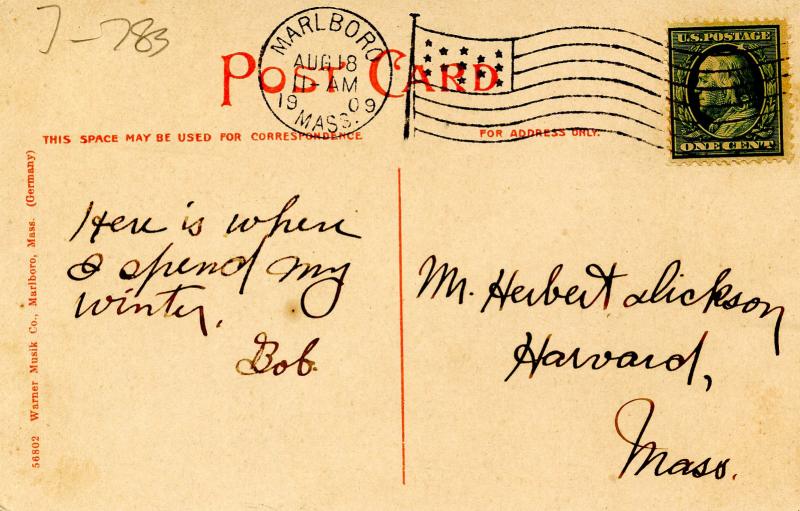 7-783
MARLBORO
AUG 18
11-AM
1909
MASS.
U.S. POSTAGE
ONE CENT
POST CARD
THIS SPACE MAY BE USED FOR CORRESPONDENCE
FOR ADDRESS ONLY.
56802 Warner Musik Co., Marlboro, Mass. (Germany)
Here is where
I spend my
winter.
Bob.
Mr. Herbert Dickson
Harvard,
Mass.